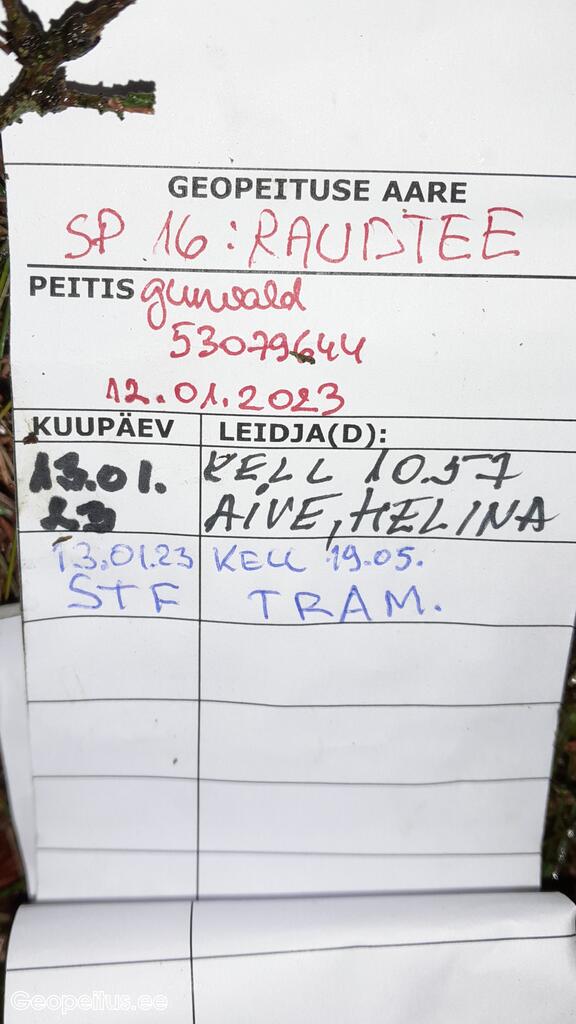 GEOPEITUSE AARE
SP 16: RAUDTEE
PEITIS gunvald
53079644
12.01.2023
KUUPÄEV LEIDJA(D):
13.01. KELL 10.57
23 AIVE, HELINA
13.01.23 KELL 19.05.
STF TRAM.
Geopeitus.ee